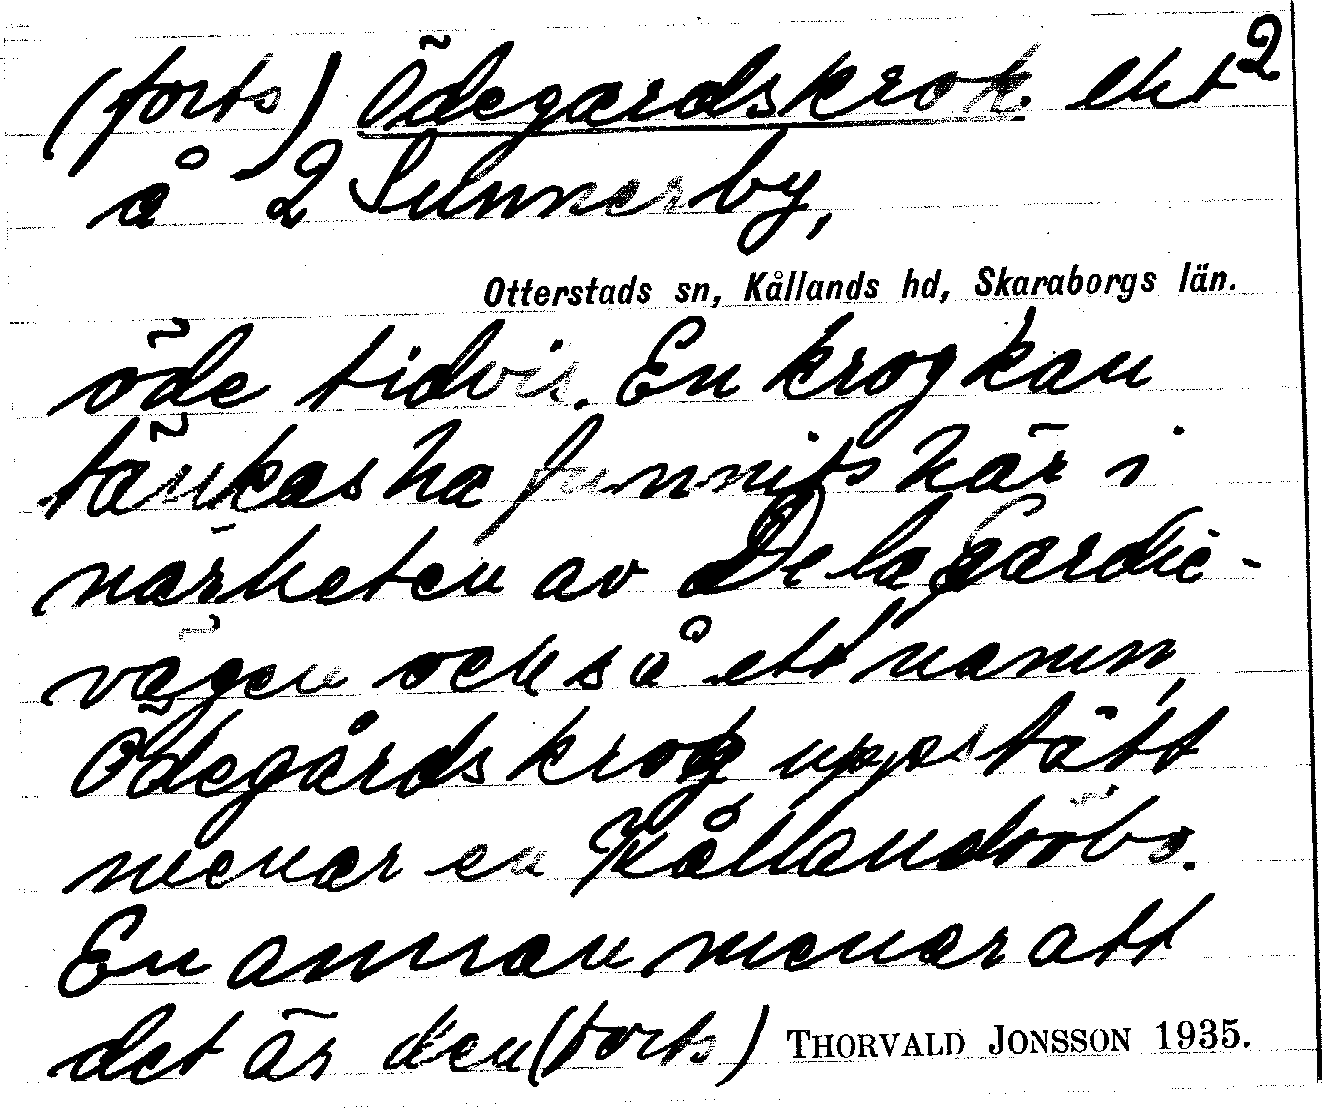 (forts) Ödegårdskrok ekt 2
å 2 Sunnerby,
Otterstads sn, Kållands hd, Skaraborgs län.
öde tidvis. En krog kan
tänkas ha funnits här i
närheten av De la Gardie-
vägen också ett namn,
Ödegårdskrog uppstått
menar en Kållandsöbo.
En annan menar att
det är den (forts)
THORVALD JONSSON 1935.